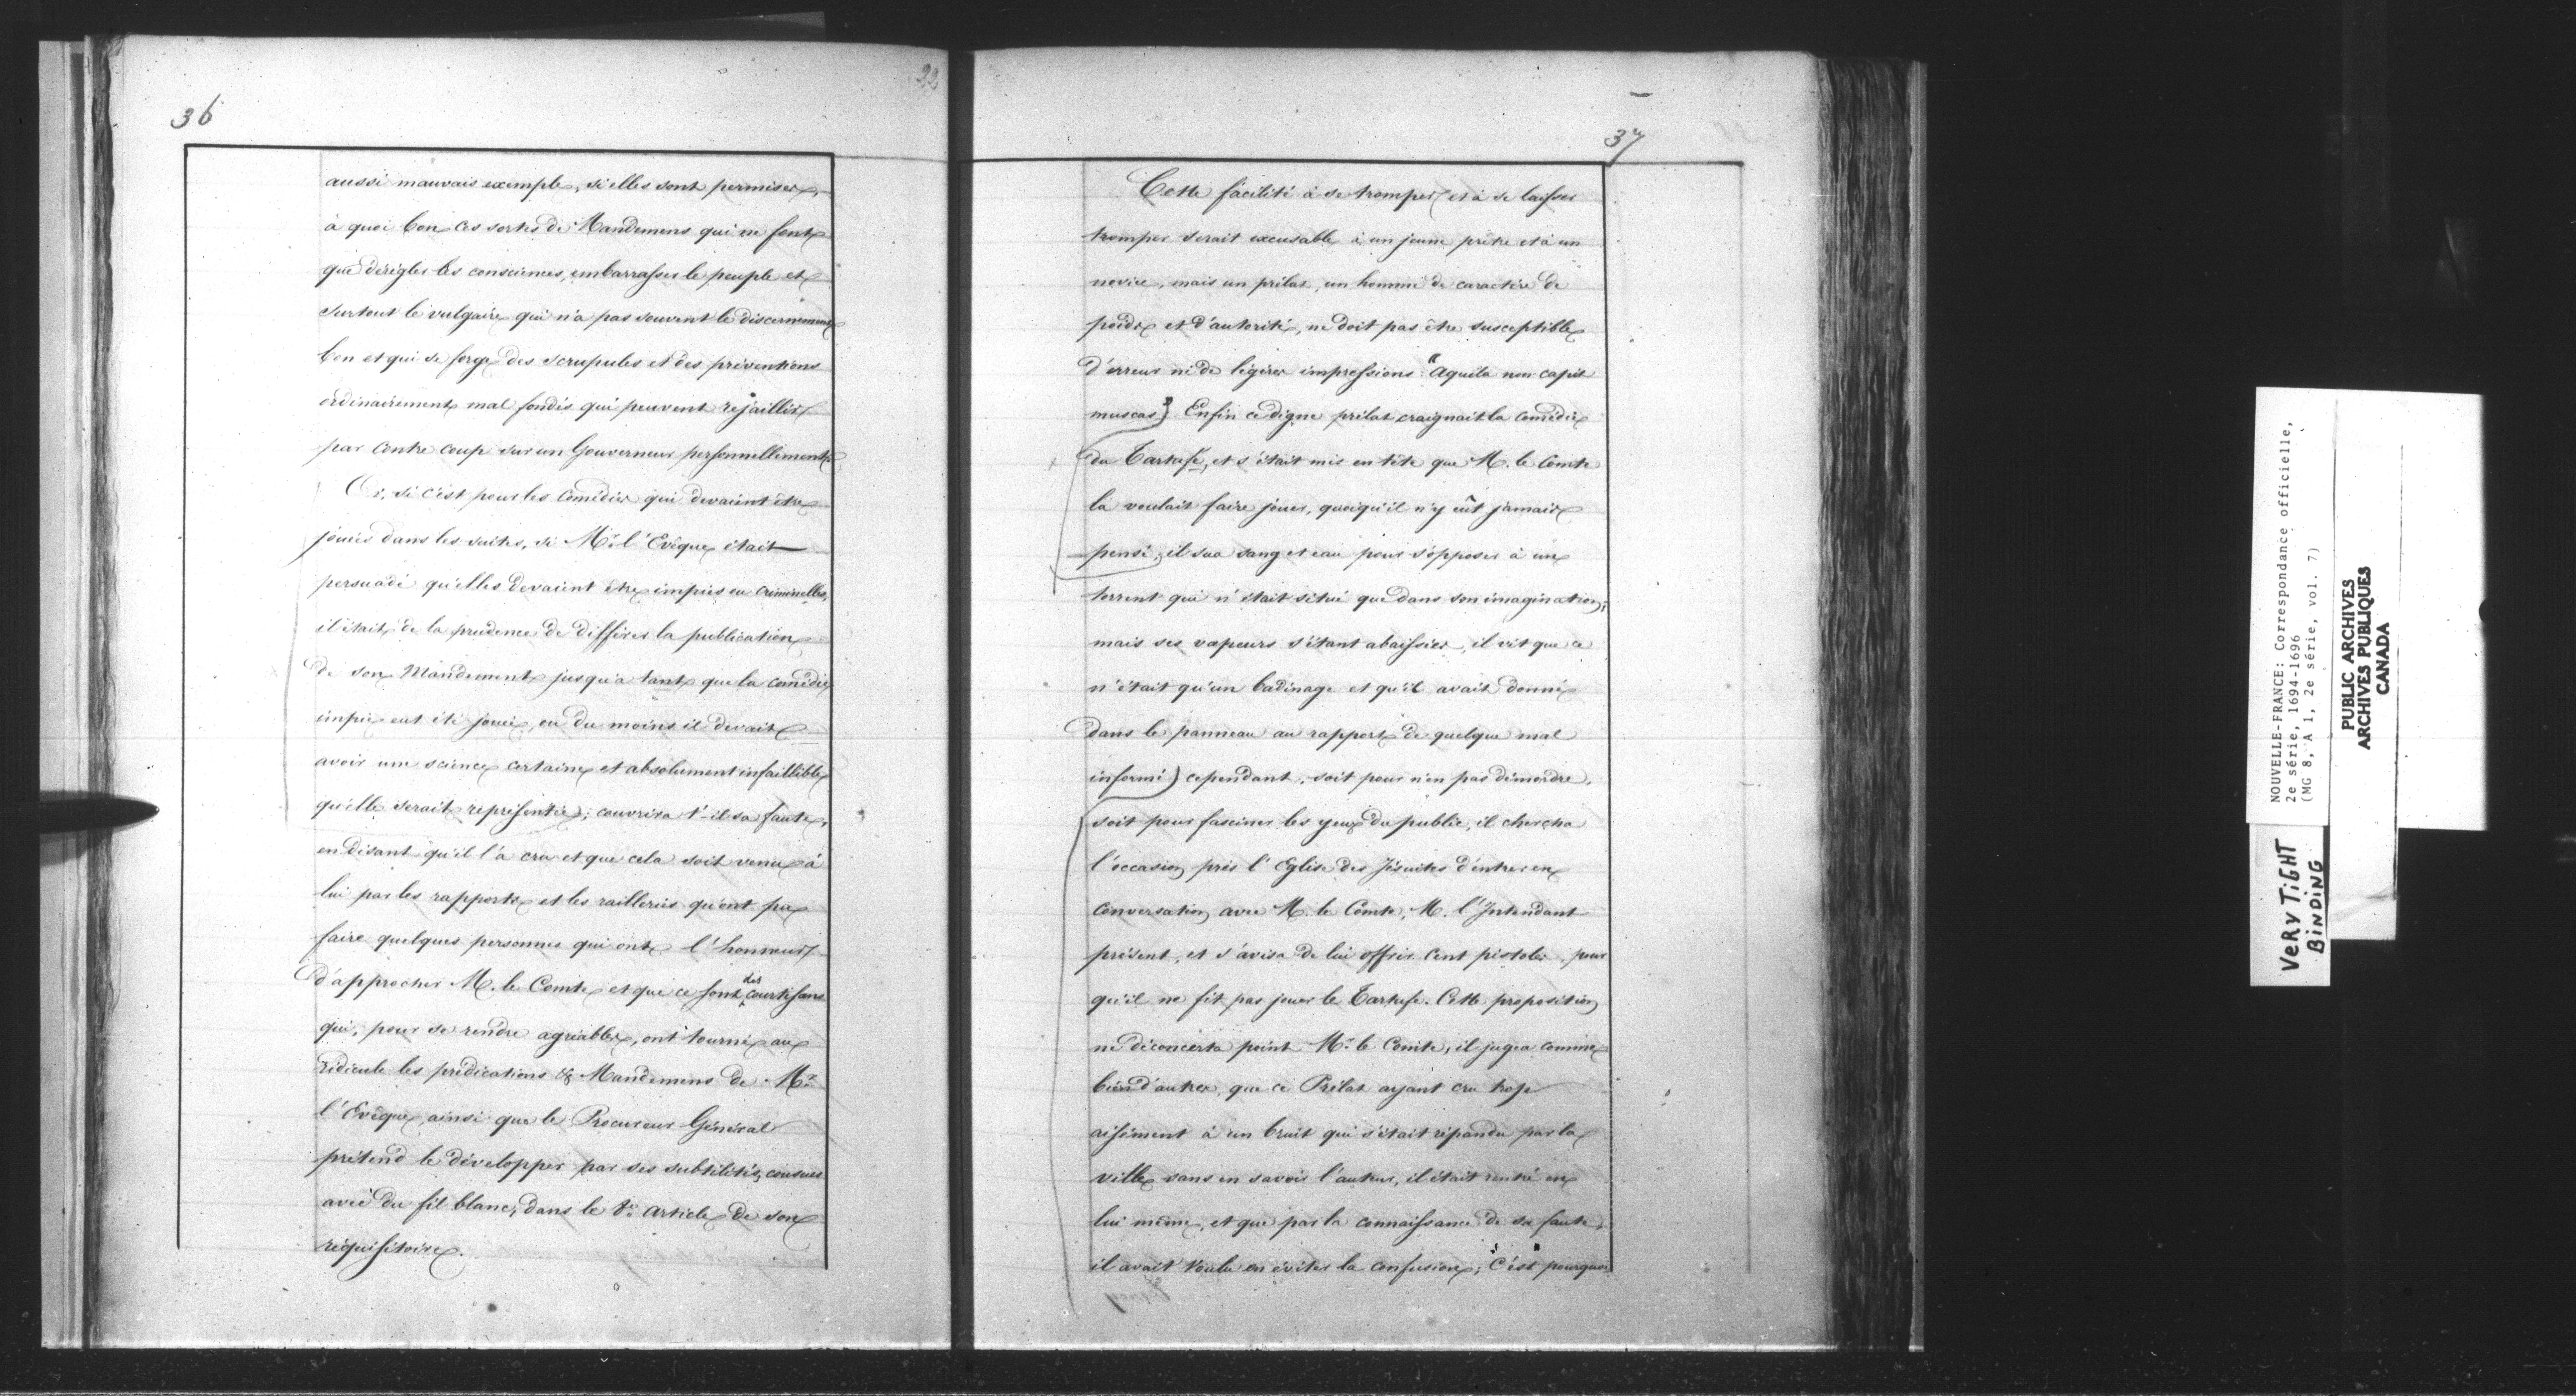 36
22
aussi mauvais exemple, si elles sont permises,
à quoi bon ces sortes de Mandemens qui ne font
que dérègler les consciences, embarrasser le peuple et
surtout le vulgaire qui n'a pas souvent le discernement
bon et qui se forge des scrupules et des préventions
ordinairement mal fondés qui peuvent rejaillir
par contre coup sur un Gouverneur personnellement.
Or, si c'est pour les Comédies qui devaient être
jouées dans les suites, si Mr. l'Evêque était
persuadé qu'elles devaient être impies ou criminelles,
il était de la prudence de différer la publication
de son Mandement jusqu'a tant que la comédie
impie eut été jouée, ou du moins il devait
avoir une science certaine et absolument infaillible
qu'elle serait représentée; couvrira t-il sa faute,
en disant qu'il l'a cru et que cela soit venu à
lui par les rapports et les railleries qu'ont pu
faire quelques personnes qui ont l'honneur
d'approcher M. le Comte et que ce sont des courtisans
qui, pour se rendre agréables, ont tourné au
ridicule les prédications & Mandemens de Mr.
l'Evêque, ainsi que le Procureur Général
prétend le développer par ses subtilités, cousues
avec du fil blanc, dans le article de son
réquisitoire.
37
Cette facilité à se tromper et à se laisser
tromper serait excusable à un jeune prêtre et à un
novice, mais un prélat, un homme de caractère de
poids et d'autorité, ne doit pas être susceptible
d'erreur ni de légères impressions: "Aquila non capit
muscas") Enfin ce digne prélat craignait la comédie
du Tartufe, et s'était mis en tête que M. le Comte
la voulait faire jouer, quoiqu'il n'y eût jamais
pensé, il sua sang et eau pour s'opposer à un
torrent qui n'était situé que dans son imagination;
mais ses vapeurs s'étant abaissées, il vit que ce
n'était qu'un badinage et qu'il avait donné
dans le panneau au rapport de quelque mal
informé) cependant, soit pour n'en pas démordre,
soit pour fasciner les yeux du public, il chercha
l'occasion près l'Eglise des Jésuites d'entrer en
conversation avec M. le Comte, M. l'Intendant
présent, et s'avisa de lui offrir Cent pistoles, pour
qu'il ne fit pas jouer le Tartufe. Cette proposition
ne déconcerta point Mr. le Comte, il jugea comme
bien d'autres, que ce Prélat ayant cru trop
aisément à un bruit qui s'était répandu par la
ville sans en savoir l'auteur, il était rentré en
lui même, et que par la connaissance de sa faute,
il avait voulu en éviter la confusion; "C'est" pourquoi
NOUVELLE-FRANCE: Correspondance officielle,
2e série, 1694-1696
(MG 8, A 1, 2e série, vol. 7)
PUBLIC ARCHIVES
ARCHIVES PUBLIQUES
CANADA
VERY TIGHT
BINDING